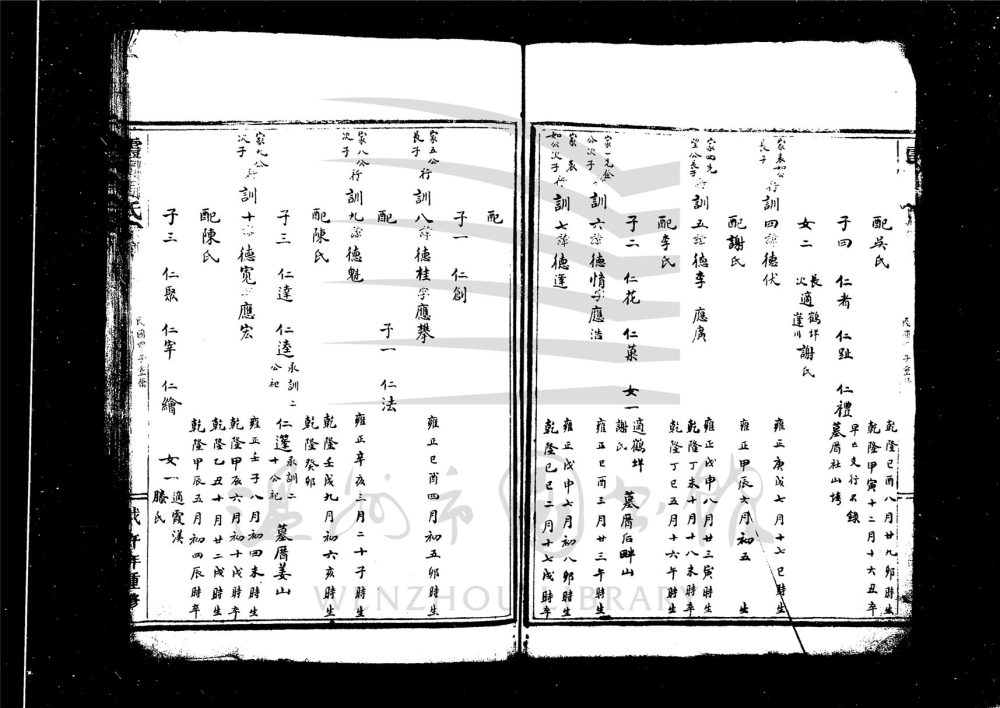 配吳氏
乾隆己酉八月廿九卯時生
乾隆甲寅十二月十六丑卒
子四 仁者 仁趾 仁禮
早亡文行不錄
墓厝社山塆
女二 長適鶴垟謝氏
次逢川
長子
訓四諱德伏
雍正庚戌七月十七巳時生
配謝氏
雍正甲辰六月初五 生
訓五諱德李 應廣
雍正戊申八月廿三寅時生
乾隆丁未十月十八未時卒
配李氏
乾隆丁巳五月十六午時生
子二 仁花 仁菓 女一 適鶴垟謝氏
墓厝后畔山
公次子
訓六諱德情字應浩
雍正己酉三月廿三午時生
如公次子行訓七諱德逢
雍正戊申七月初八卯時生
乾隆己巳二月十七戌時卒
配
子一 仁創
家五公行
長子
訓八諱德桂字應攀
雍正己酉四月初五卯時生
配 子一 仁法
家八公行
次子
訓九諱德魁
雍正辛亥三月二十子時生
配陳氏
乾隆壬戌九月初六亥時生
乾隆癸卯
子三 仁達 仁逵 承訓二公祀
仁蓬 承訓二十公祀
墓厝姜山
家九公行
次子
訓十諱德寬字應宏
雍正壬子八月初四未時生
乾隆甲辰六月初十戌時卒
配陳氏
乾隆乙丑十月廿二戌時生
乾隆甲辰五月初四辰時卒
子三 仁聚 仁宰 仁繪 女一 適霞漢
滕氏
溫州市圖書館
WENZHOU LIBRARY